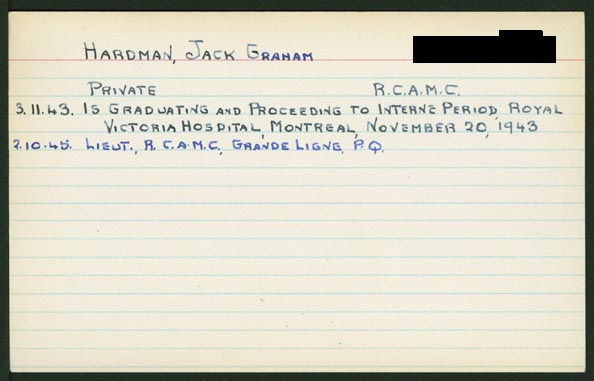 HARDMAN, JACK GRAHAM
PRIVATE R.C.A.M.C.
3.11.43. IS GRADUATING AND PROCEEDING TO INTERNE PERIOD, ROYAL
VICTORIA HOSPITAL, MONTREAL, NOVEMBER 20, 1943
2.10.45. LIEUT., R.C.A.M.C., GRANDE LIGNE, P.Q.